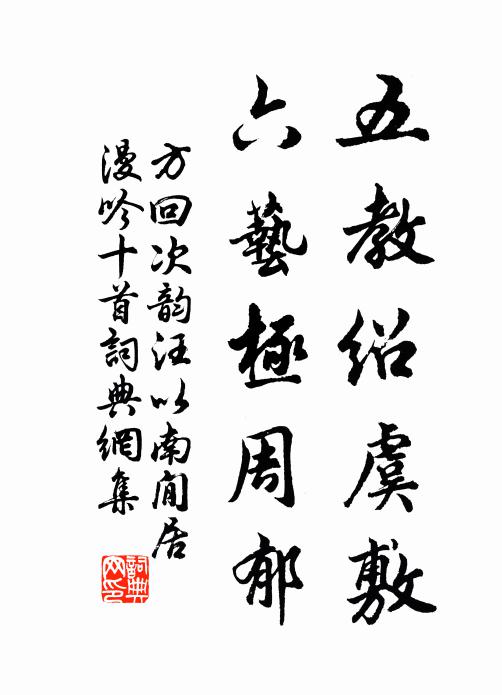 五教绍虞敷
六藝極周郁
方回次韵汪以南閒居
漫吟十首詞典網集
詞典網印